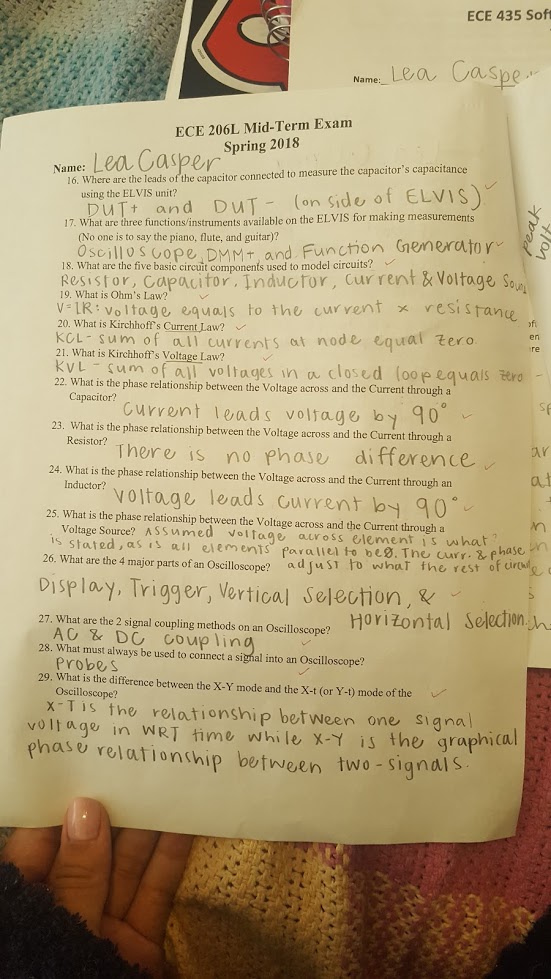 ECE 435 Soft
Name: Lea Caspe
ECE 206L Mid-Term Exam
Spring 2018
Name: Lea Casper
16. Where are the leads of the capacitor connected to measure the capacitor's capacitance
using the ELVIS unit?
DUT+ and DUT- (on side of ELVIS)
17. What are three functions/instruments available on the ELVIS for making measurements
(No one is to say the piano, flute, and guitar)?
Oscilloscope, DMM+, and Function Generator
18. What are the five basic circuit components used to model circuits?
Resistor, Capacitor, Inductor, Current & Voltage
19. What is Ohm's Law?
V=IR: voltage equals to the current x resistance
20. What is Kirchhoff's Current Law?
KCL- sum of all currents at node equal zero
21. What is Kirchhoff's Voltage Law?
KVL - sum of all voltages in a closed loop equals zero
22. What is the phase relationship between the Voltage across and the Current through a
Capacitor?
Current leads voltage by 90°
23. What is the phase relationship between the Voltage across and the Current through a
Resistor?
There is no phase difference
24. What is the phase relationship between the Voltage across and the Current through an
Inductor?
Voltage leads current by 90°
25. What is the phase relationship between the Voltage across and the Current through a
Voltage Source? Assumed voltage across element is what
is stated, as is all elements parallel to be0. The curr. & phase
26. What are the 4 major parts of an Oscilloscope? adjust to what the rest of circuit
Display, Trigger, Vertical Selection, &
Horizontal Selection.
27. What are the 2 signal coupling methods on an Oscilloscope?
AC & DC coupling
28. What must always be used to connect a signal into an Oscilloscope?
Probes
29. What is the difference between the X-Y mode and the X-t (or Y-t) mode of the
Oscilloscope?
X-T is the relationship between one signal
voltage in WRT time while X-Y is the graphical
phase relationship between two-signals.
peak
volt